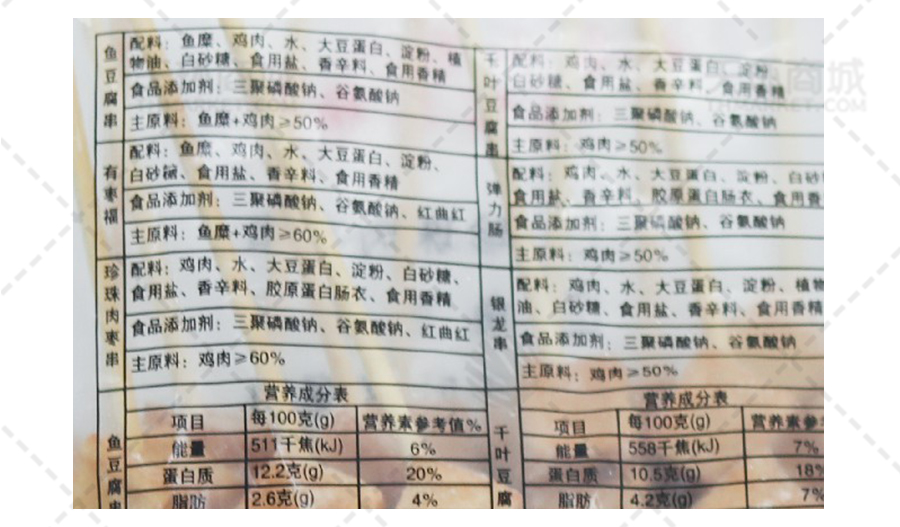 鱼豆腐串
配料：鱼糜、鸡肉、水、大豆蛋白、淀粉、植
物油、白砂糖、食用盐、香辛料、食用香精
食品添加剂：三聚磷酸钠、谷氨酸钠
主原料：鱼糜+鸡肉≥50%
有枣福
配料：鱼糜、鸡肉、水、大豆蛋白、淀粉、
白砂糖、食用盐、香辛料、食用香精
食品添加剂：三聚磷酸钠、谷氨酸钠、红曲红
主原料：鱼糜+鸡肉≥60%
珍珠肉枣串
配料：鸡肉、水、大豆蛋白、淀粉、白砂糖、
食用盐、香辛料、胶原蛋白肠衣、食用香精
食品添加剂：三聚磷酸钠、谷氨酸钠、红曲红
主原料：鸡肉≥60%
营养成分表
项目 每100克(g) 营养素参考值%
鱼豆腐串
能量 511千焦(kJ) 6%
蛋白质 12.2克(g) 20%
脂肪 2.6克(g) 4%
千叶豆腐串
配料：鸡肉、水、大豆蛋白、淀粉、
白砂糖、食用盐、香辛料、食用香精
食品添加剂：三聚磷酸钠、谷氨酸钠
主原料：鸡肉≥50%
弹力肠
配料：鸡肉、水、大豆蛋白、淀粉、白砂
食用盐、香辛料、胶原蛋白肠衣、食用香
食品添加剂：三聚磷酸钠、谷氨酸钠
主原料：鸡肉≥50%
银龙串
配料：鸡肉、水、大豆蛋白、淀粉、植物
油、白砂糖、食用盐、香辛料、食用香精
食品添加剂：三聚磷酸钠、谷氨酸钠
主原料：鸡肉≥50%
营养成分表
项目 每100克(g) 营养素参
千叶豆腐
能量 558千焦(kJ) 7%
蛋白质 10.5克(g) 18%
脂肪 4.2克(g) 7%
商城